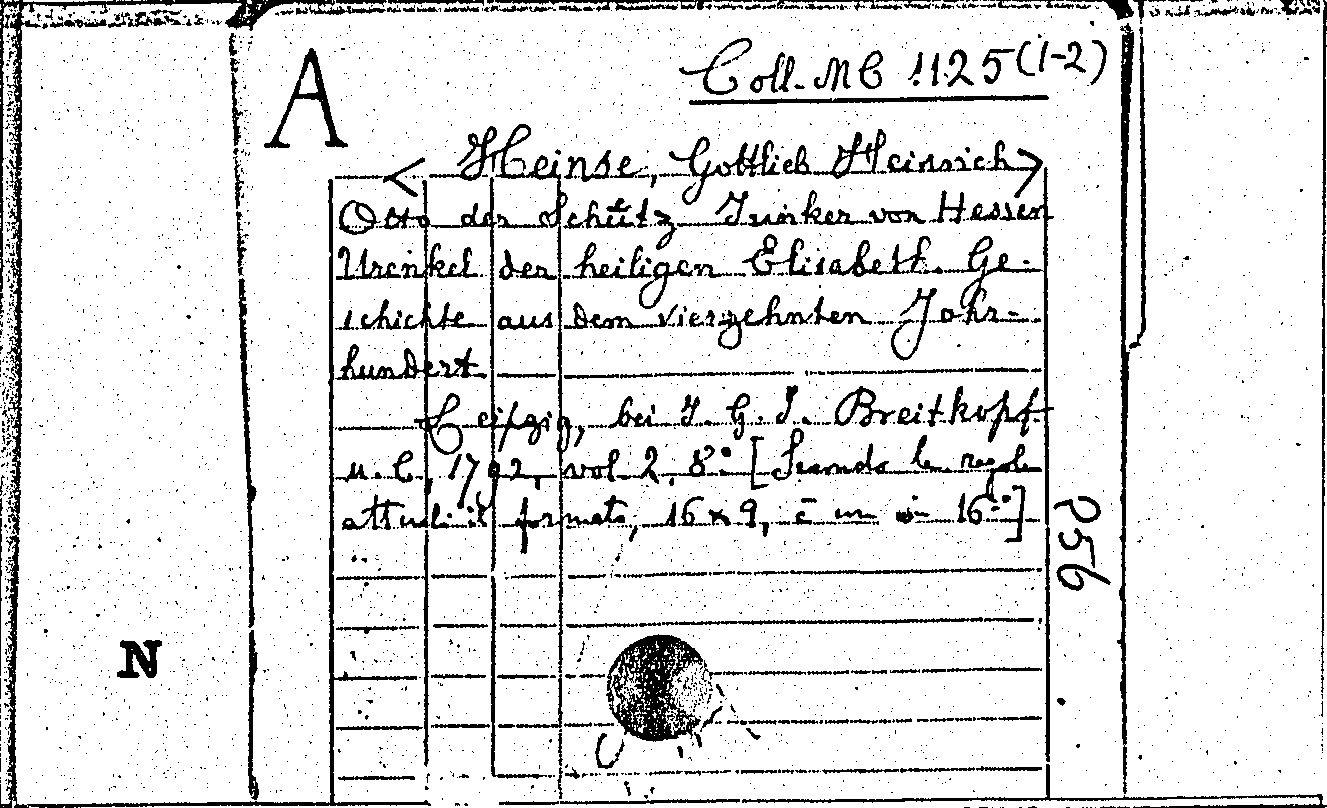 A
Coll. MC 1125 (1-2)
< Heinse, Gottlieb Heinrich >
Otto der Schütz Junker von Hessen
Urenkel der heiligen Elisabeth. Ge-
schichte aus dem vierzehnten Jahr-
hundert
Leipzig, bei J. G. I. Breitkopf
u. C, 1792, vol. 2, 8° [Secondo le regole
attuali il formato, 16 x 9, è un in 16°]
256
N